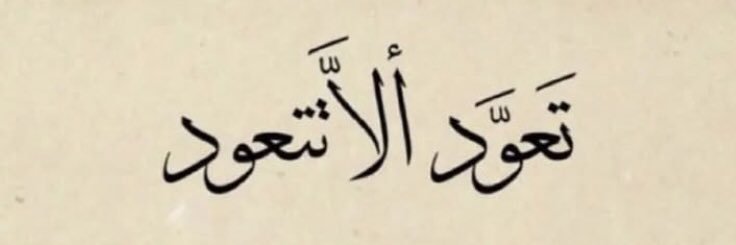 تَعوَّدَ ألاَّ تتعود